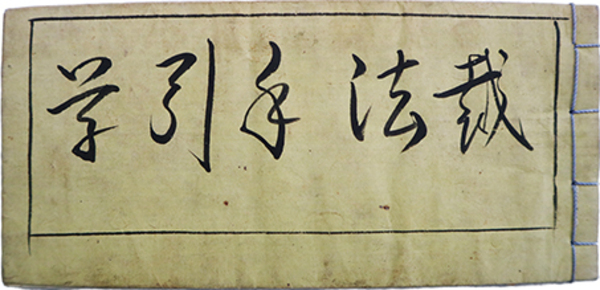 裁法手引草